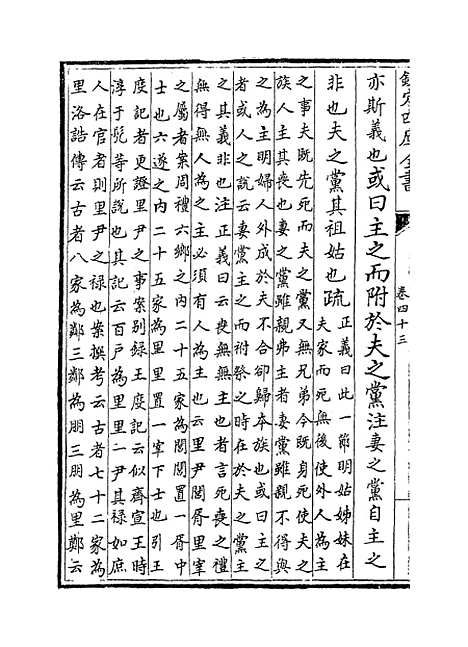 欽定四庫全書
卷四十三
亦斯義也或曰主之而附於夫之黨注妻之黨自主之
非也夫之黨其祖姑也疏
正義曰此一節明姑姊妹在
夫家而死無後使外人為主
之事夫既先死而夫之黨又無兄弟今既身死使夫之
族人主其喪也妻之黨雖親弗主者妻黨雖親不得與
之為主明婦人外成於夫不合卻歸本族也或曰主之
者或人之說云妻黨主之而祔祭之時在於夫之黨主
之其義非也注正義曰云喪無無主也者言死喪之禮
無得無人為之主必須有人為主也云里尹閭胥里宰
之屬者案周禮六鄉之內二十五家為閭閭置一胥中
士也六遂之內二十五家為里里置一宰下士也引王
度記者更證里尹之事案別錄王度記云似齊宣王時
淳于髡等所說也其記云百戶為里里一尹其祿如庶
人在官者則里尹之祿也案撰考云古者七十二家為
里洛誥傳云古者八家為鄰三鄰為朋三朋為里鄭云